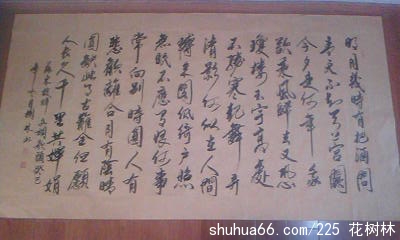 明月幾時有把酒問
青天不知天上宮闕
今夕是何年 我
欲乘風歸去又恐
瓊樓玉宇高處
不勝寒起舞弄
清影何似在人間
轉朱閣低綺戶照
無眠不應有恨何事
常向別時圓人有
悲歡離合月有陰晴
圓缺此事古難全但願
人長久千里共嬋娟
shuhua66.com/225 花树林